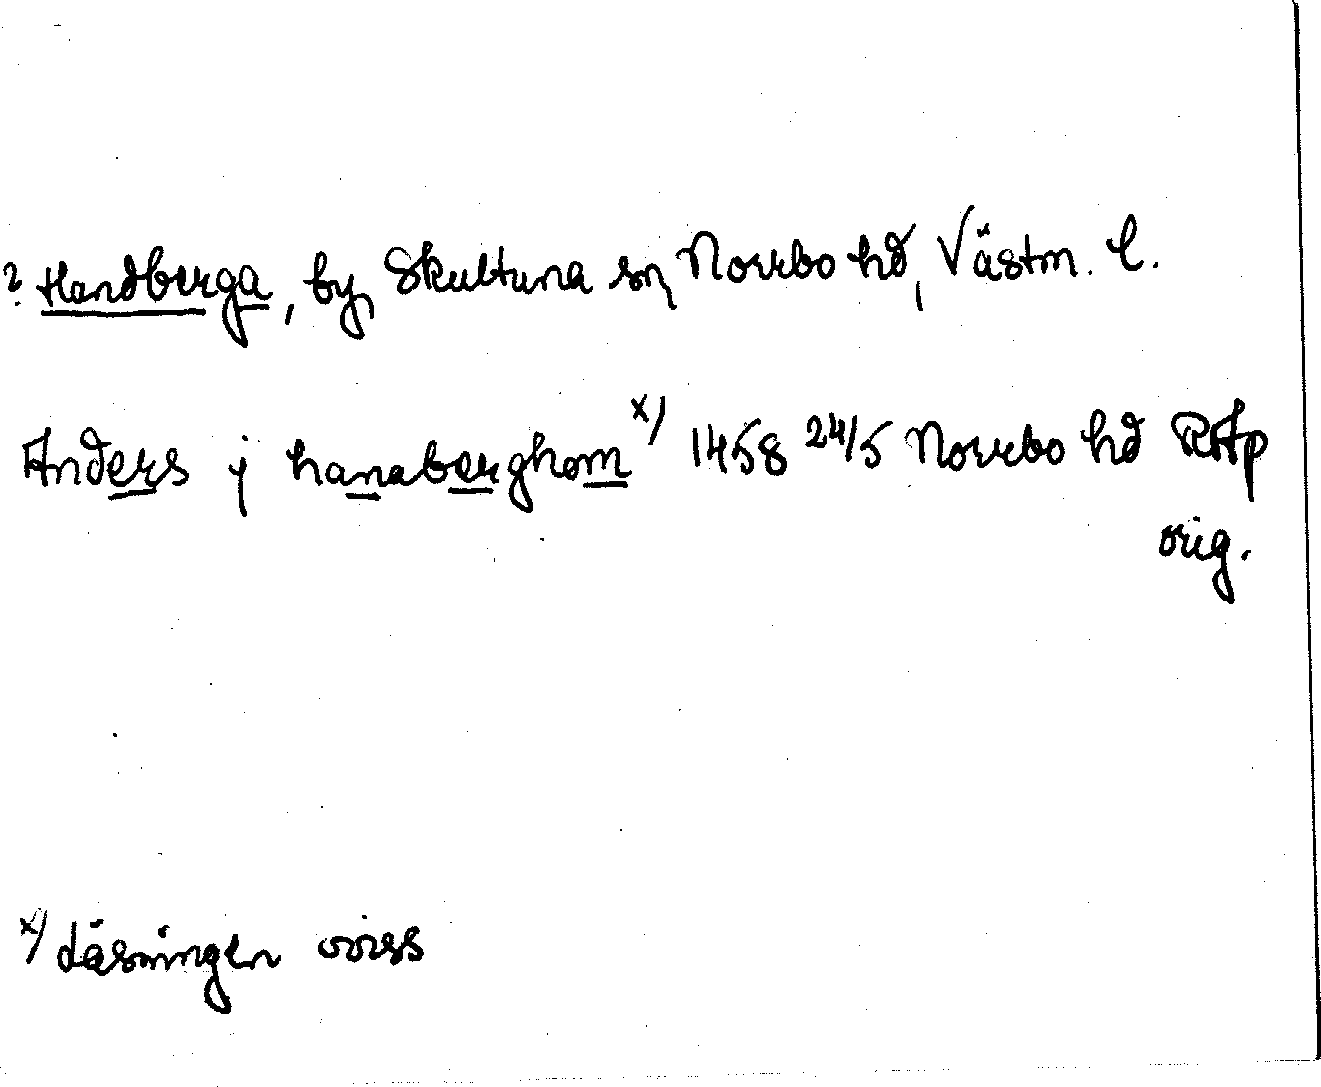 ? Handberga, by, Skultuna sn, Norrbo hd, Västm. l.
Anders j hanaberghom x) 1458 24/5 Norrbo hd RAp
orig.
x) Läsningen viss